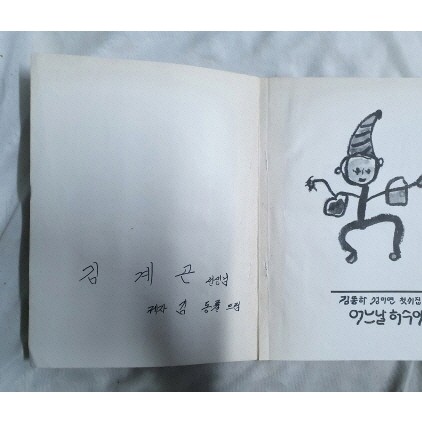 김 계 곤 선생님
제자 김 동 드림
김동하 김미연 첫쉬집
어느날 허수아